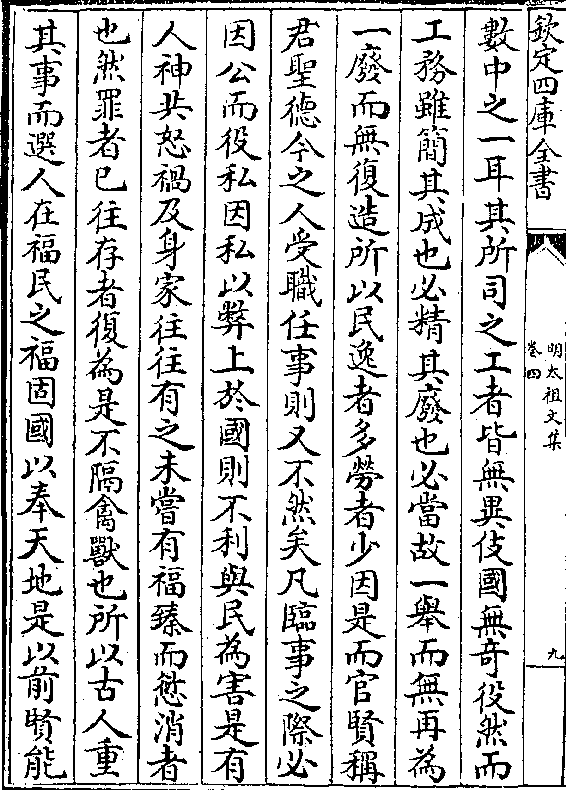 欽定四庫全書
明太祖文集
卷四
九
數中之一耳其所司之工者皆無異伎國無奇役然而
工務雖簡其成也必精其廢也必當故一舉而無再為
一廢而無復造所以民逸者多勞者少因是而官賢稱
君聖德今之人受職任事則又不然矣凡臨事之際必
因公而役私因私以弊上於國則不利與民為害是有
人神共怒禍及身家往往有之未嘗有福臻而愆消者
也然罪者已往存者復為是不隔禽獸也所以古人重
其事而選人在福民之福固國以奉天地是以前賢能